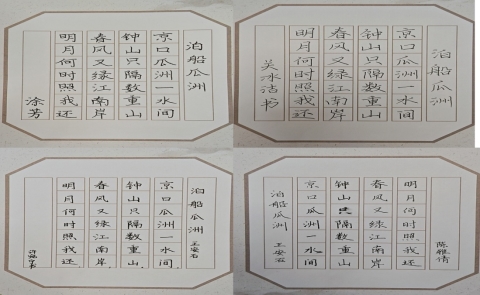 泊船瓜洲
京口瓜洲一水间
钟山只隔数重山
春风又绿江南岸
明月何时照我还
涂芳
泊船瓜洲
京口瓜洲一水间
钟山只隔数重山
春风又绿江南岸
明月何时照我还
吴冰洁书
泊船瓜洲 王安石
京口瓜洲一水间
钟山只隔数重山
春风又绿江南岸
明月何时照我还
泊船瓜洲 王安石
京口瓜洲一水间
钟山只隔数重山
春风又绿江南岸
明月何时照我还
陈雅倩